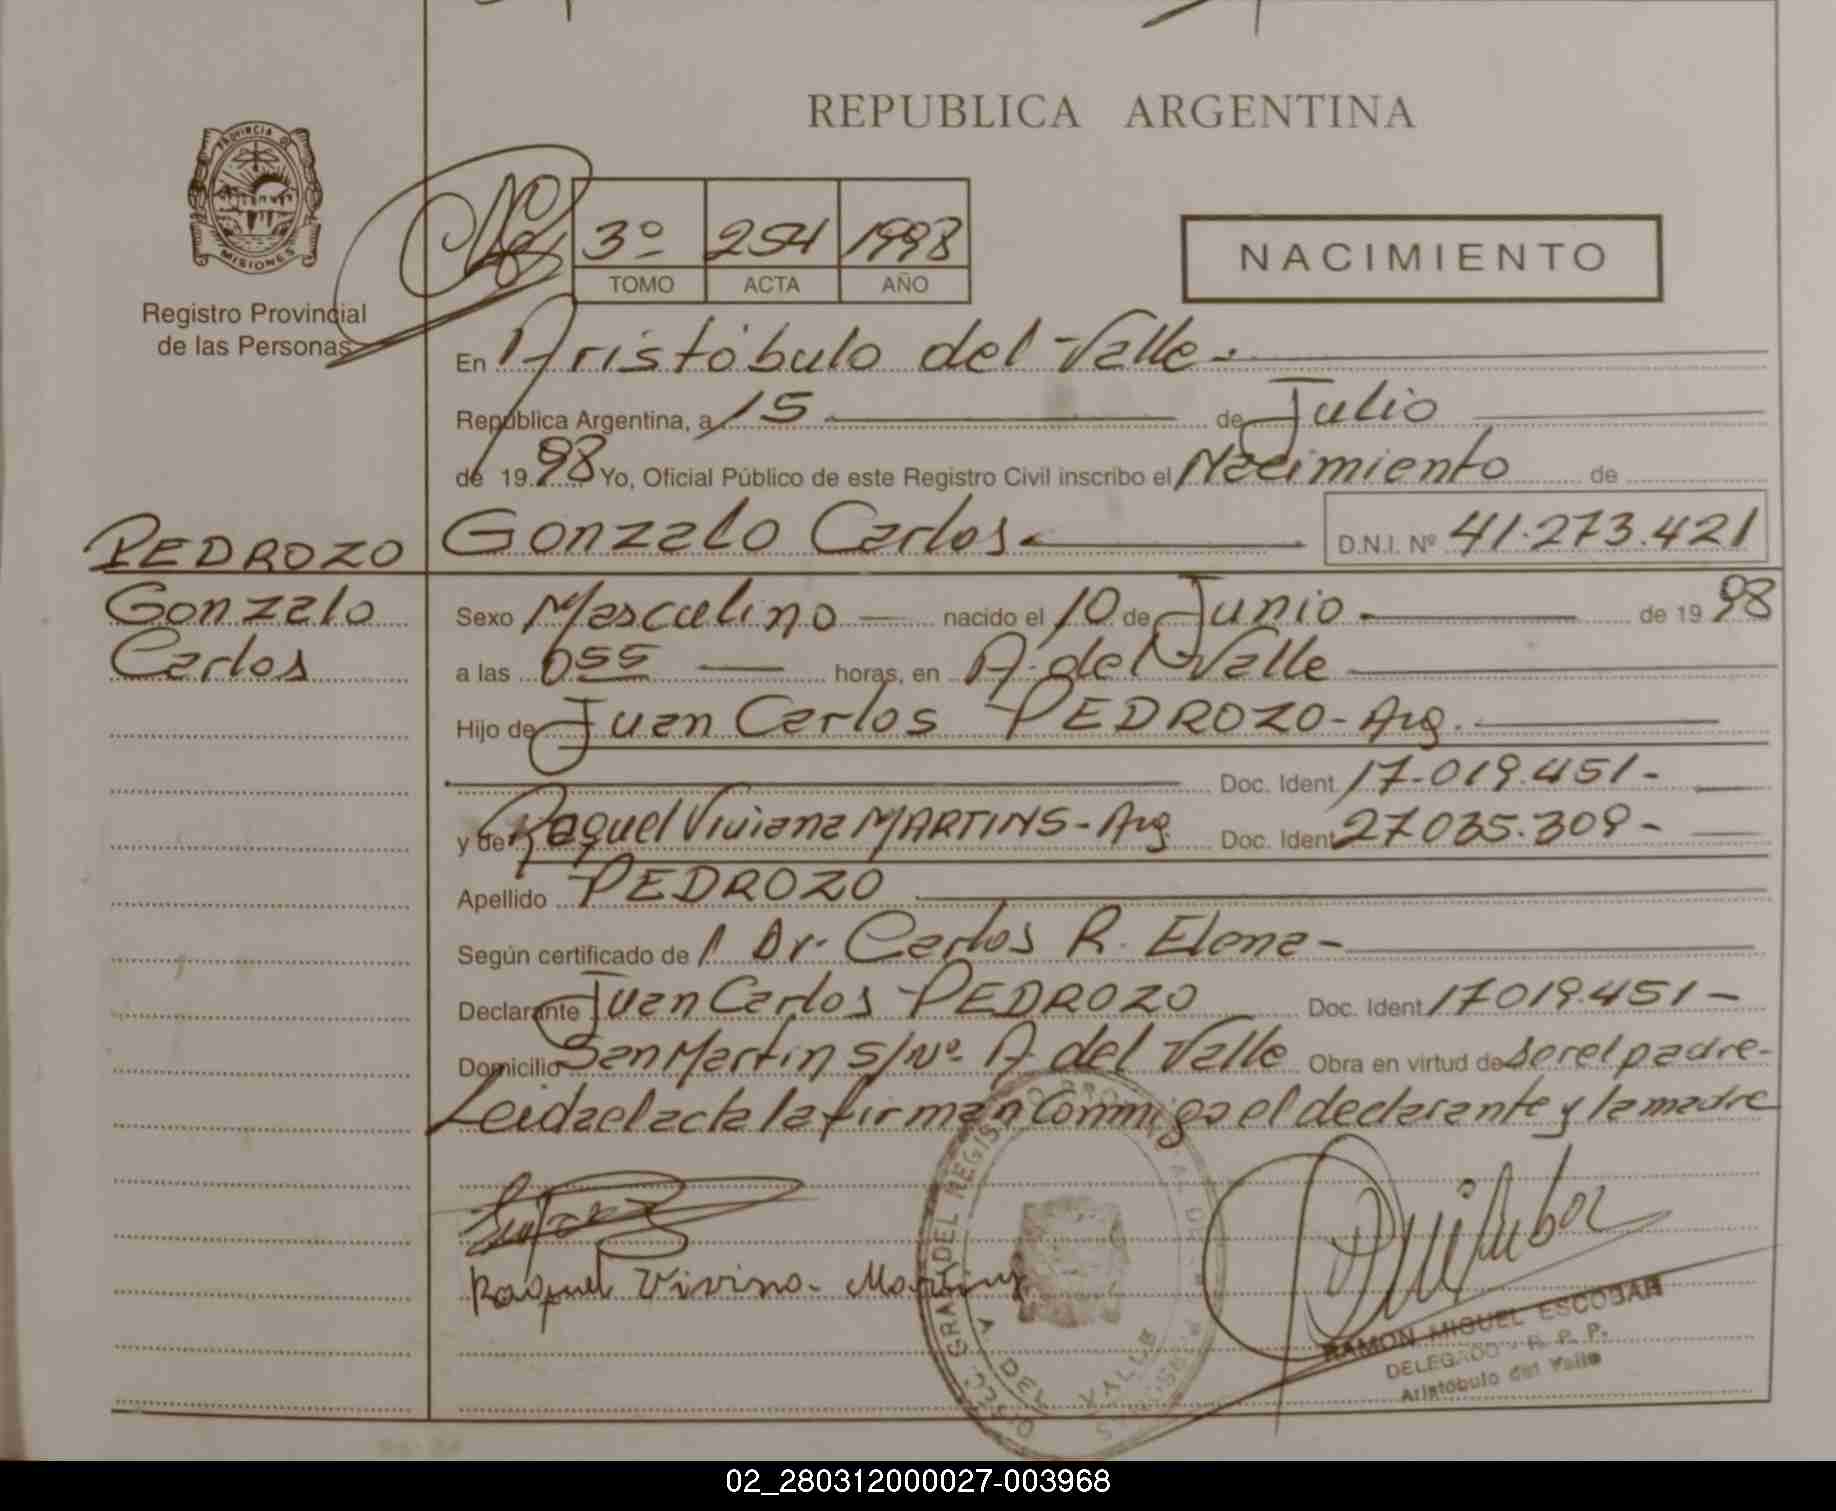 REPUBLICA ARGENTINA
PROVINCIA DE
MISIONES
Registro Provincial
de las Personas
3º 254 1998
TOMO ACTA AÑO
NACIMIENTO
En Aristóbulo del Valle.
República Argentina, a 15 de Julio
de 1998 Yo, Oficial Público de este Registro Civil inscribo el Nacimiento de
PEDROZO Gonzalo Carlos D.N.I. Nº 41.273.421
Gonzalo Sexo Masculino nacido el 10 de Junio de 1998
Carlos a las 055 horas, en A. del Valle
Hijo de Juan Carlos PEDROZO - Arg.
Doc. Ident. 17.019.451-
y de Raquel Viviana MARTINS - Arg. Doc. Ident 27.035.309-
Apellido PEDROZO
Según certificado de l Dr. Carlos R. Elena -
Declarante Juan Carlos PEDROZO Doc. Ident. 17019.451-
Domicilio San Martin s/Nº A. del Valle Obra en virtud de ser el padre-
Leida el acta la firman Conmigo el declarante y la madre
Raquel Martins
RAMON MIGUEL ESCOBAR
DELEGADO - R. P. P.
Aristóbulo del Valle
A. DEL VALLE
02_280312000027-003968